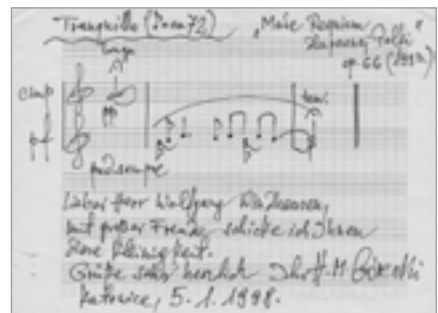 Tranquillo (♩=ca 72) "Małe Requiem
longa dla pewnej Polki"
op. 66 (1993)
pp
ten.
ped. sempre
Lieber Herr Wolfgang
mit großer Freude schicke ich Ihnen
eine Kleinigkeit.
Grüße sehr herzlich Ihr H. M. Górecki
Katowice, 5. 1. 1998.